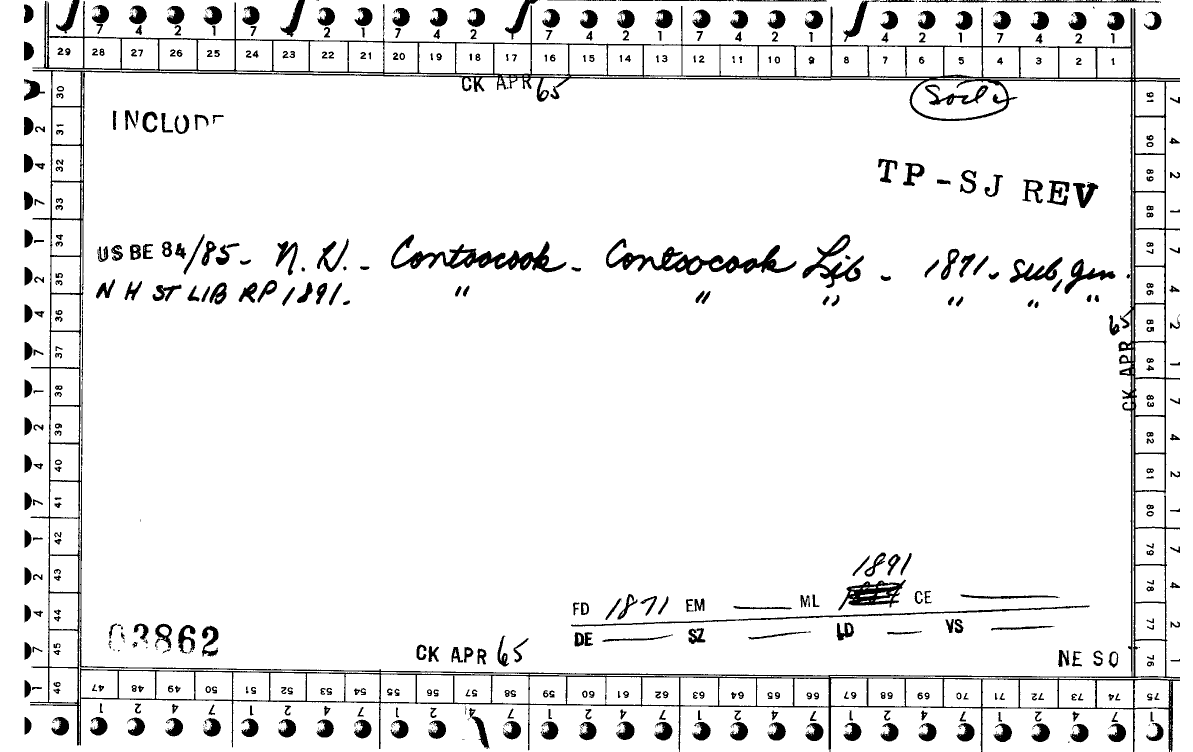 7 4 2 1 7 2 1 7 4 2 1 7 4 2 1 7 4 2 1 7 4 2 1 7 4 2 1
29 28 27 26 25 24 23 22 21 20 19 18 17 16 15 14 13 12 11 10 9 8 7 6 5 4 3 2 1
CK APR 65
INCLUDE
TP-SJ REV
US BE 84/85- N.H. - Contoocook - Contoocook Lib - 1871. sub, gen.
N H ST LIB RP 1891. " " " " " "
CK APR 65
1891
FD 1871 EM — ML CE —
DE — SZ — LD — VS —
03862
CK APR 65
NE SO
30 31 32 33 34 35 36 37 38 39 40 41 42 43 44 45 46
91 90 89 88 87 86 85 84 83 82 81 80 79 78 77 76 75
47 48 49 50 51 52 53 54 55 56 57 58 59 60 61 62 63 64 65 66 67 68 69 70 71 72 73 74